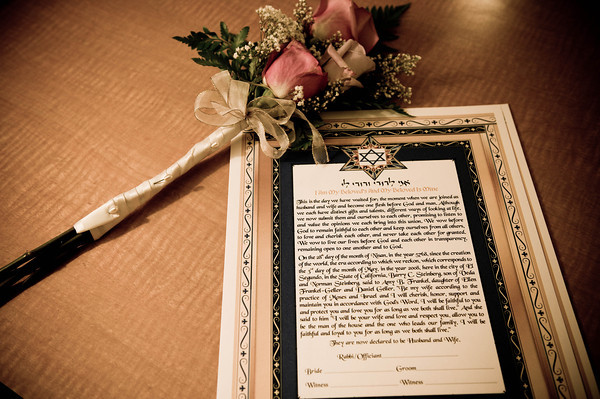 אני לדודי ודודי לי
I am My Beloved's And My Beloved Is Mine
This is the day we have waited for; the moment when we are joined as
husband and wife and become one flesh before God and man. Although
we each have distinct gifts and talents, different ways of looking at life,
we now submit them and ourselves to each other, promising to listen to
and value the opinions we each bring into this union. We vow before
God to remain faithful to each other and keep ourselves from all others,
to love and cherish each other, and never take each other for granted.
We vow to live our lives before God and each other in transparency,
remaining open to one another and to God.
On the 28 day of the month of Nisan, in the year 5768, since the creation
of the world, the era according to which we reckon, which corresponds to
the 3 day of the month of May, in the year 2008, here in the city of El
Segundo, in the State of California, Barry C. Steinberg, son of Deda
and Norman Steinberg, said to Amy B. Frankel, daughter of Ellen
Frankel-Geller and Daniel Geller, "Be my wife according to the
practice of Moses and Israel and I will cherish, honor, support and
maintain you in accordance with God's Word. I will be faithful to you
and protect you and love you for as long as we both shall live." And she
said to him "I will be your wife and love and respect you, allow you to
be the man of the house and the one who leads our family. I will be
faithful and loyal to you for as long as we both shall live."
They are now declared to be Husband and Wife.
Rabbi/Officiant
Bride Groom
Witness Witness